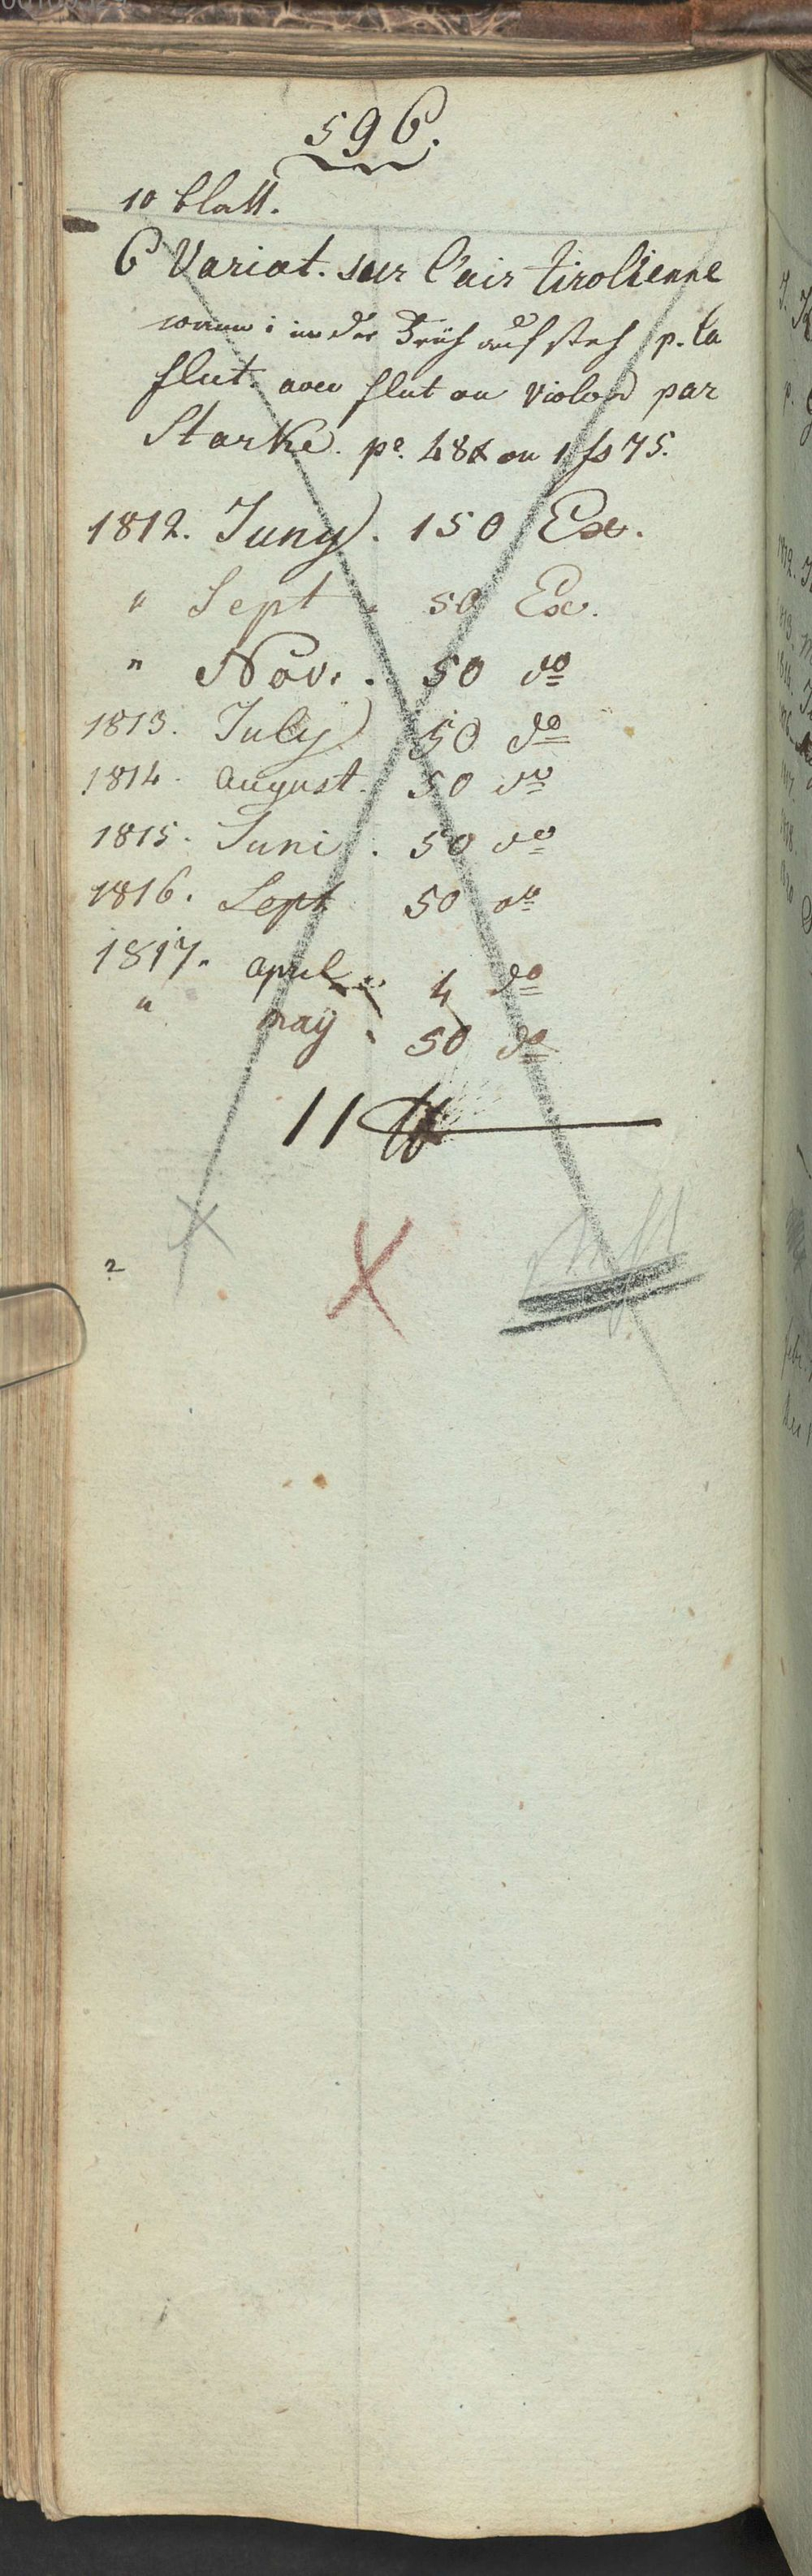 596.
10 blatt.
6 Variat. sur l'air tirolienne
wann i in der Früh aufsteh p. la
flut. avec flut ou violon par
Starke. pr. 48x ou 1 fs 75.
1812. Juny. 150 Ex.
" Sept. 50 Ex.
" Nov. . 50 do
1813. July 50 do
1814. august. 50 do
1815. Juni . 50 do
1816. Sept 50 do
1817. april . 4 do
" may . 50 do
11 ℔
2